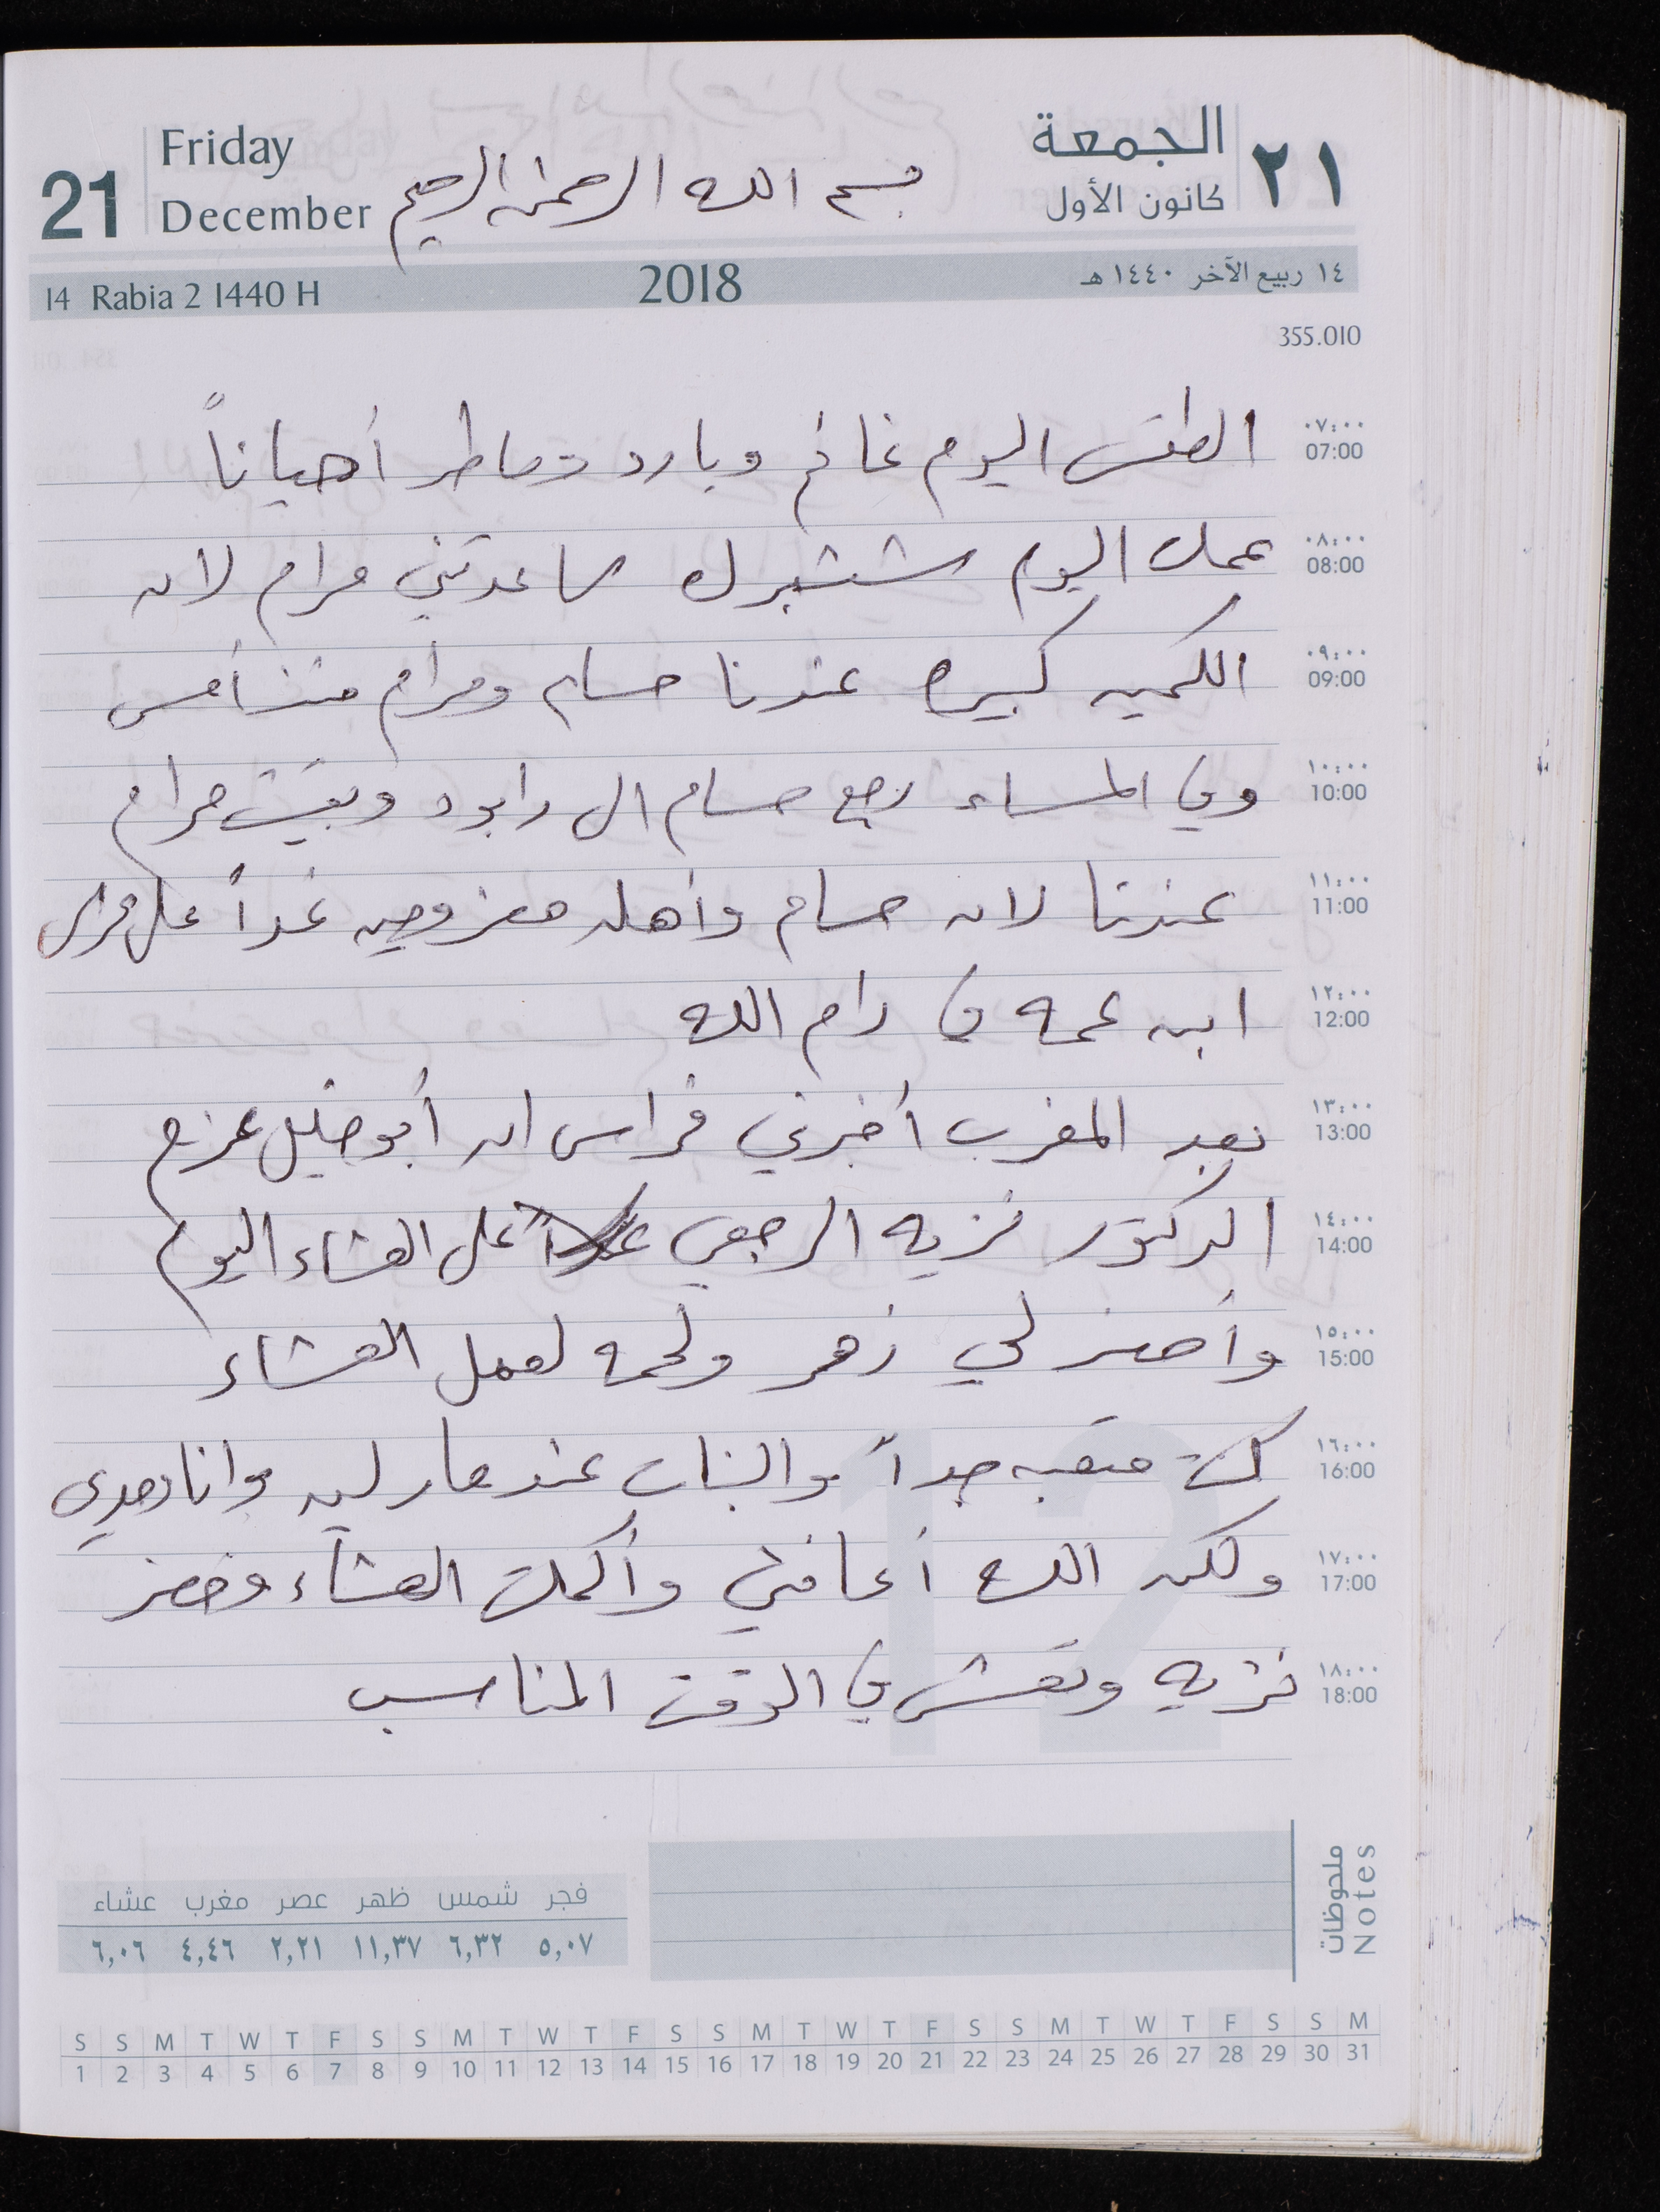 Friday الجمعة
21 ٢١
December بسم الله الرحمن الرحيم كانون الأول
14 Rabia 2 1440 H 2018 ١٤ ربيع الآخر ١٤٤٠ هـ
355.010
٠٧:٠٠ 07:00 الطقس اليوم غائم وبارد وماطر أحياناً
٠٨:٠٠ 08:00 عملت اليوم ششبرك ساعدتني مرام لان
٠٩:٠٠ 09:00 الكميه كبيره عندنا حسام ومرام منذ أمس
١٠:٠٠ 10:00 وفي المساء رجع حسام الى رابود وبقيت مرام
١١:٠٠ 11:00 عندنا لان حسام وأهله معزومين غداً على فراس
١٢:٠٠ 12:00 ابن عمه في رام الله
١٣:٠٠ 13:00 بعد المغرب أخبرني فراس ان أبو خليل عزم
١٤:٠٠ 14:00 الدكتور نزيه الرجعي على العشاء اليوم
١٥:٠٠ 15:00 وأحضر لي زهر ولحمه لعمل العشاء
١٦:٠٠ 16:00 كنت متعبه جداً والبنات عند مارلين وانا وحدي
١٧:٠٠ 17:00 ولكن الله أعانني وأكملت العشاء وحضر
١٨:٠٠ 18:00 نزيه وتعشى في الوقت المناسب
ملحوظات
Notes
فجر شمس ظهر عصر مغرب عشاء
٥,٠٧ ٦,٣٢ ١١,٣٧ ٢,٢١ ٤,٤٦ ٦,٠٦
12
S S M T W T F S S M T W T F S S M T W T F S S M T W T F S S M
1 2 3 4 5 6 7 8 9 10 11 12 13 14 15 16 17 18 19 20 21 22 23 24 25 26 27 28 29 30 31